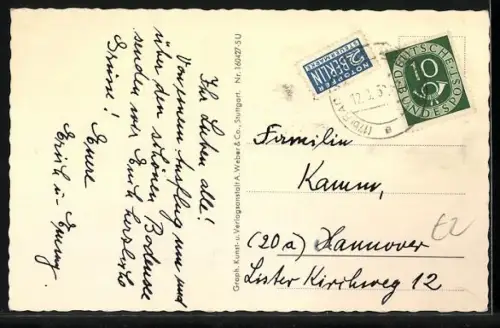 Ihr Lieben alle!
Von einem Ausflug um und
über den schönen Bodensee
senden wir Euch herzliche
Grüsse!
Euere
Erich u.
Graph. Kunst- u. Verlagsanstalt A. Weber & Co., Stuttgart. Nr. 60427-5 U
NOTOPFER
2 BERLIN
STEUERMARKE
DEUTSCHE
BUNDESPOST
10
Familie
Kamm,
(20a) Hannover
Lister Kirchweg 12